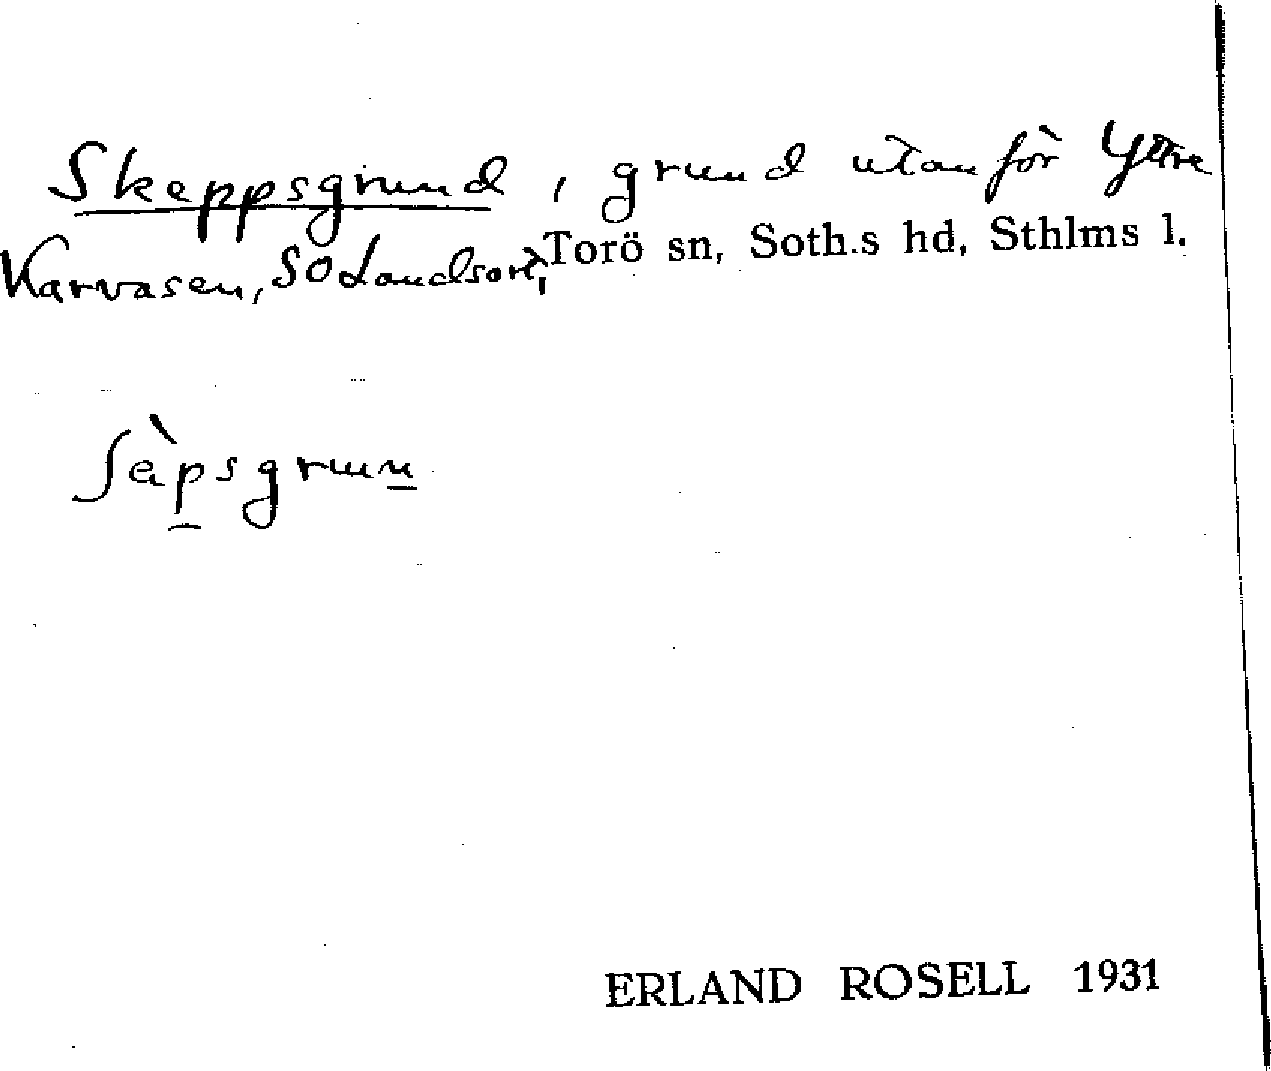 Skeppsgrund, grund utanför Yttre
Karvasen, SO Landsort, Torö sn, Soth.s hd, Sthlms l.
ʃèpsgrun
ERLAND ROSELL 1931